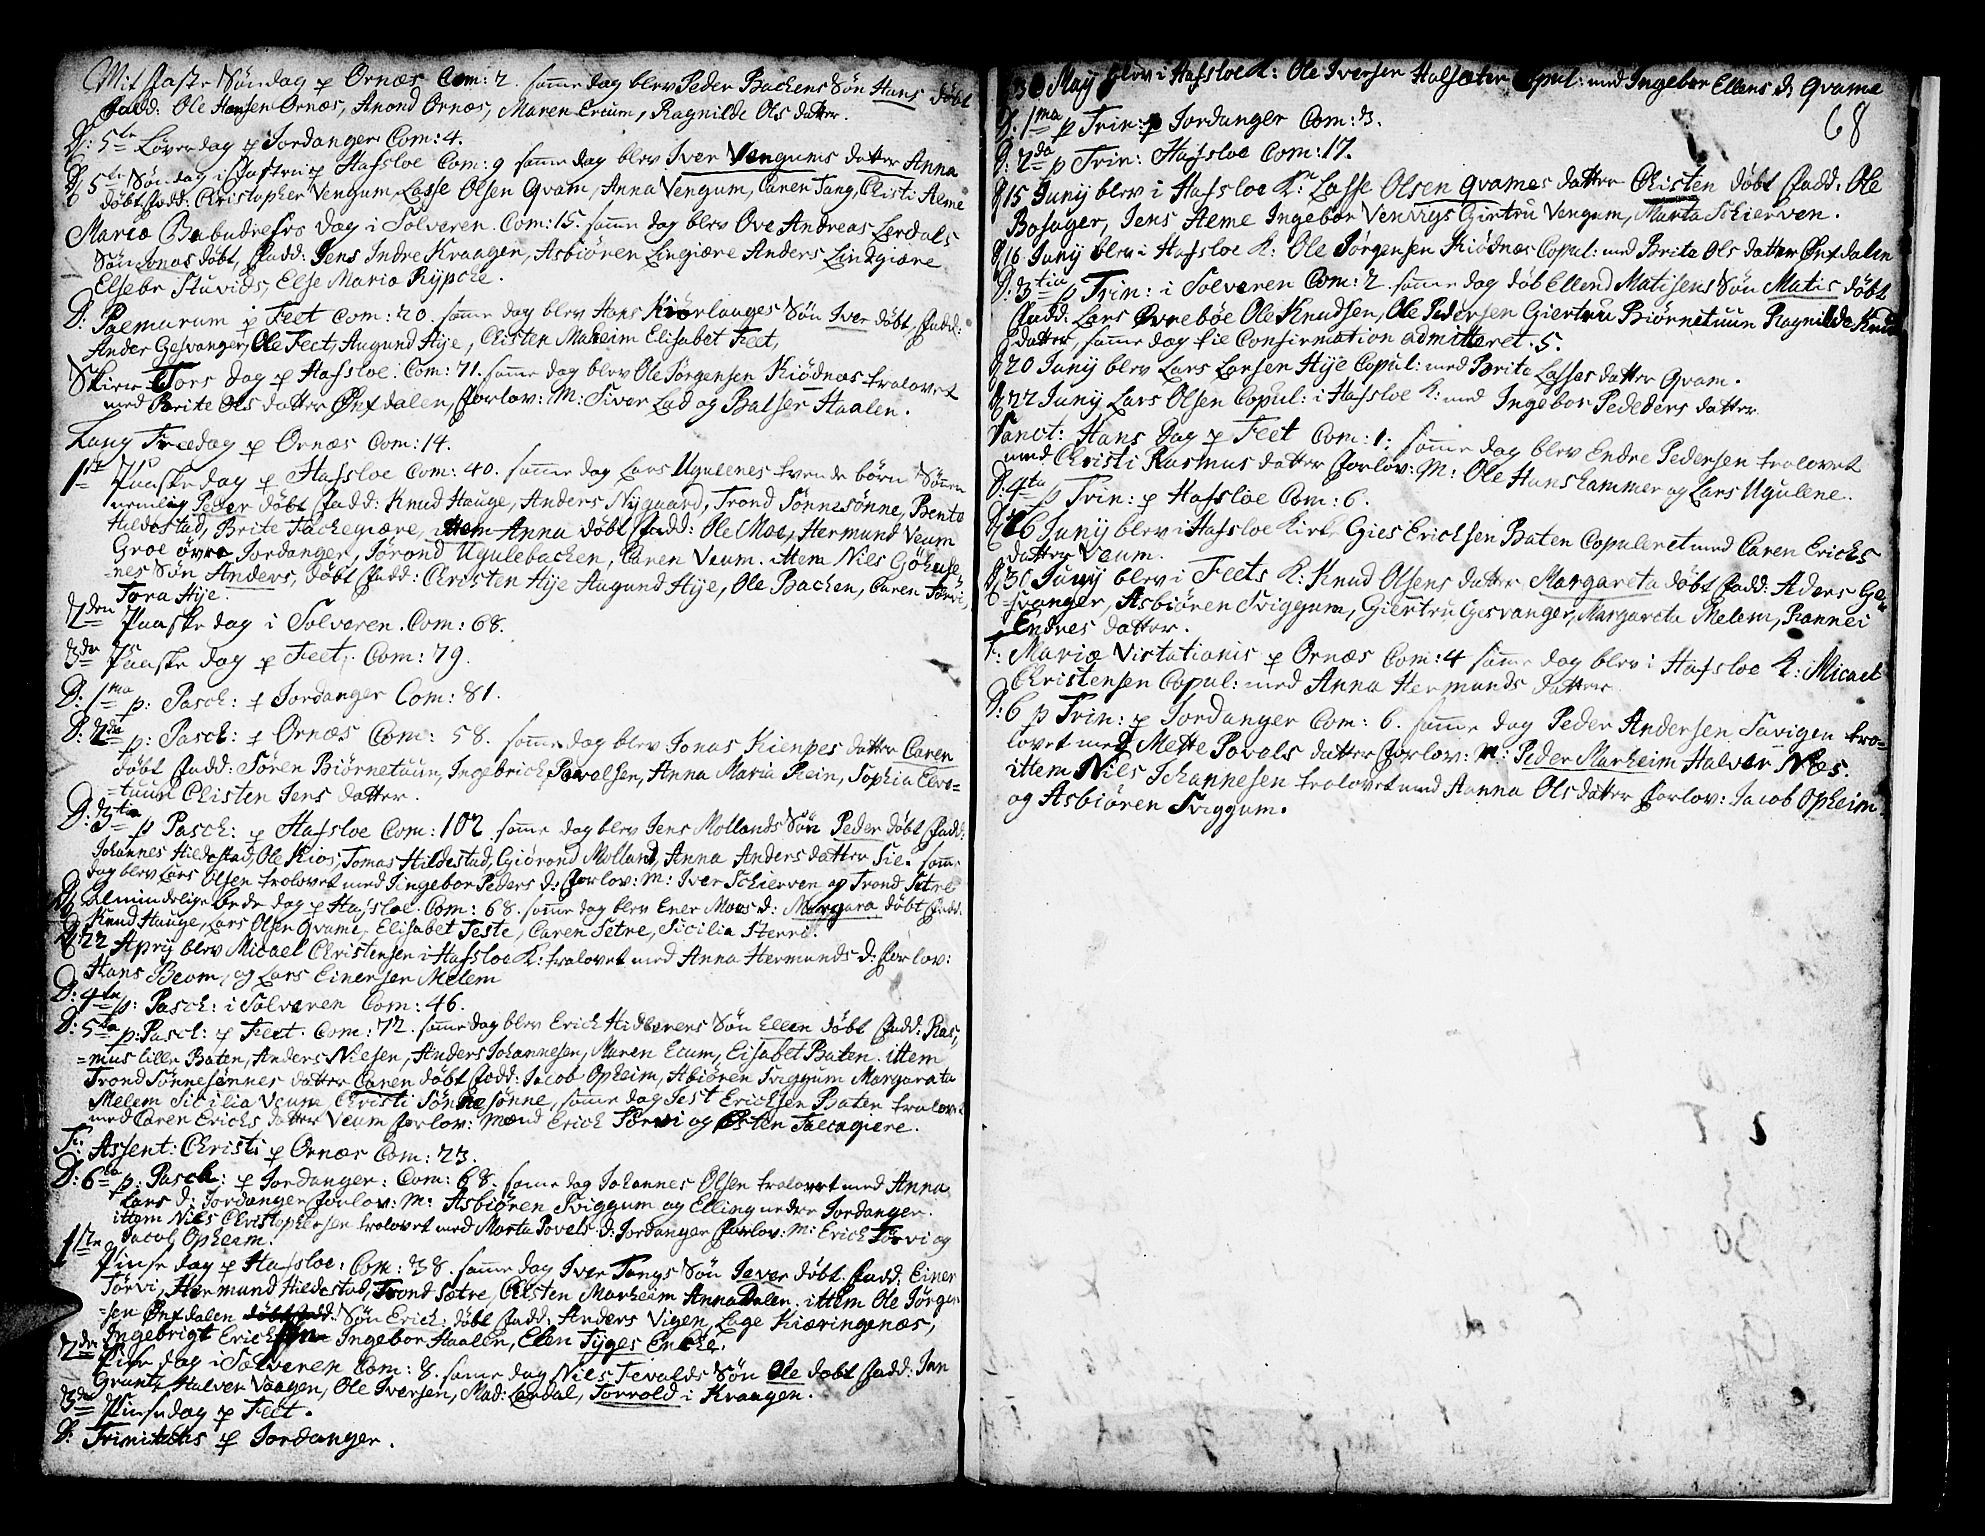 Mit faste Søndag p Ornæs Com: 2. samme dag blev Peder Backens Søn Hans døbt
fadd: Ole Hansen Ornæs, Anond Ornæs, Maren Ecium, Ragnilde Ols datter.
D: 5te Løverdag p Jordanger Com: 4.
D 5te Søndag i fasten p Hafsloe Com: 9 samme dag blev Iver Vengums datter Anna
døbt fadd: Christopher Vengum, Lasse Olsen Qvam, Anna Vengum, Caren Tang, Christi Aeme
Mariæ Bebudreses Dag i Solveren. Com: 15. samme dag blev Ove Andreas Lerdals
Søn Jonas døbt, fadd: Jens Indre Kraagen, Asbiören Lingiære Anders Lindgiære
Elsebe Stuvids, Else Maria Rÿpche.
D: Palmarum p Feet Com: 20. samme dag blev Hans Kiörlauges Søn Iver døbt, fadd:
Ander Gesvanger, Ole Feet, Augund Hÿe, Christen Marheim Elisabet Feet,
Skire Tors dag p Hafsloe. Com: 71. samme dag blev Ole Jørgensen Kiødnæs trolovet
med Brite Ols datter Ønfdalen, forlov: M: Siver Lad og Balser Haalen.
Lang Freedag p Ornæs Com: 14.
1ste Paaske dag p Hafsloe Com: 40. samme dag Lars Ugulenes tvende børn Sønen
nemlig Peder døbt fadd: Knud Hauge, Anders Nÿgaard, Trond Sønnesønne, Bente
Hildestad, Brite Tackegiære, ittem Anna døbt fadd: Ole Moe, Hermund Veum
Groe övre Jordanger, Jørond Ugulebacken, Caren Veum. ittem Nils Göhuse
=nes Søn Anders, døbt fadd: Christen Hÿe Augund Hÿe, Ole Backen, Caren Törvi,
Tora Hÿe.
2den Paaske dag i Solveren. Com: 68.
3de Paaske dag p Feet. Com: 79.
D: 1ma p: Pasch: p Jordanger Com: 81.
D: 2da p: Pasch: p Ornæs Com: 58. samme dag blev Jonas Kienpes datter Caren
døbt fadd: Søren Biørnetuun, Ingebrickt Povelsen, Anna Maria Rein, Sophia Elvo=
=tuun Christen Jens datter.
D: 3tia p Pasch: p Hafsloe Com: 102 samme dag blev Jens Mollands Søn Peder døbt fadd:
Johannes Hildestad, Ole Kios, Tomas Hildestad, Giörond Molland, Anna Anders datter Sie. samme
dag blev Lars Olsen trolovet med Ingebor Peders d: forlov: M: Iver Schierven og Trond Setre
D Almindelige Bede dag p Hafsloe. Com: 68. samme dag blev Ener Moes d: Margara døbt fadd:
Knud Hauge, Lars Olsen Qvame, Elisabet Teste, Caren Setre, Sicilia Sterri.
D 22 Aprÿ blev Micael Christensen i Hafsloe K: trolovet med Anna Hermunds d: forlov:
Hans Beom, og Lars Einersen Melem
D: 4ta p: Pasch: i Solveren Com: 46.
D: 5ta p: Pasch: p Feet. Com: 72. samme dag blev Erick Hidlerens Søn Ellen døbt fadd: Ras,
=mus lille Baten, Anders Nielsen, Anders Johannesen, Maren Ecum, Elsabet Baten. ittem
Trond Sønnesønnes datter Caren døbt fadd: Jacob Opheim, Abiören Sviggum Margarata
Melem Sicilia Veum Christi Sønnesønne, samme dag Jest Ericksen Baten trolovet
med Caren Ericks datter Veum forlov: mænd Erick Törvi og Østen Taccagiere.
F: Assent: Christi p Ornæs Com: 23.
D: 6ta p: Pasch: p Jordanger: Com: 68. samme dag Johannes Olsen trolovet med Anna
Lars d: Jordanger forlov: M: Asbiören Sviggum og Elling nedre Jordanger.
ittem Nils Christophersen trolovet med Marta Povels d: Jordanger forlov: M: Erick Törvi og
Jacob Opheim.
1ste Pinse dag p Hafsloe: Com: 38. samme dag Iver Tangs Søn Iever døbt. fadd: Einer
Törvi, Hermund Hildestad, Trond Sætre, Christen Marheim Anna Dalen. ittem Ole Jörgen
=sen Ønfdalen døbt fadd: Søn Erick: døbt fadd: Anders Vigen, Lage Kiæringenæs,
Ingebrigt Ericksen Ingebor Haalen, Ellen Tÿges Encke.
2den Pinse dag i Solveren Com: 8. samme dag Nils Tevalds Søn Ole døbt fadd: Jan
Grantz, Halver Vaagen, Ole Iversen, Mad: Lerdal, Torrold i Kraagen.
3de Pinsedag p Feet.
D: Trinitatis p Jordanger.
30 Maÿ blev i Hafsloe K: Ole Iversen Halsæter Copul: med Ingebor Ellens d: Qvame
68
D. 1ma p Trin: p Jordanger Com: 3.
D: 2da p Trin: Hafsloe Com: 17.
D 15 Junÿ blev i Hafsloe K: Lasse Olsen Qvames datter Christen døbt fadd: Ole
Bosager, Jens Aeme Ingebor Venvigs Giertru Vengum, Marta Schierven.
D 16 Junÿ blev i Hafsloe K: Ole Jørgensen Kiødnæs Copul: med Brita Ols datter Ønfdalen
D: 3tia p Trin: i Solveren Com: 2. samme dag døb Ellend Matisens Søn Matis døbt
fadd: Lars Øvrebøe Ole Knudsen, Ole Pedersen Giertru Biørnetuun Ragnilde Knuds
datter, samme dag tie Confirmation admitteret. 5.
D 20 Junÿ blev Lars Larsen Hÿe Copul: med Brita Lasses datter Qvam.
D 22 Junÿ Lars Olsen Copul: i Hafsloe K: med Ingebor Pededers datter
Sanct: Hans Dag p Feet Com: 1: samme dag blev Endre Pedersen trolovet
med Christi Rasmus datter forlov: M: Ole Hanshammer og Lars Ugulene.
D: 4ta p Trin: p Hafsloe Com: 6.
D 26 Junÿ blev i Hafsloe Kirke Gies Ericksen Baten Copuleret med Caren Ericks
datter Veum.
D 30 Junÿ blev i Feets K: Knud Olsens datter Margareta døbt fadd: Aders Ge=
=svanger, Asbiören Sviggum, Giertru Gesvanger, Margareta Melem, Rannei
Endres datter.
F: Mariæ Visitationis p Ornæs Com: 4 samme dag blev i Hafsloe K: Micael
Christensen Copul: med Anna Hermunds datter
D: 6 p Trin: p Jordanger Com: 6. samme dag Peder Andersen Savigen tro=
lovet med Mette Povels datter forlov: M: Peder Marheim Halver Næs.
ittem Nils Johannesen trolovet med Aanna Olsdatter forlov: Jacob Opheim.
og Asbiören Sviggum.